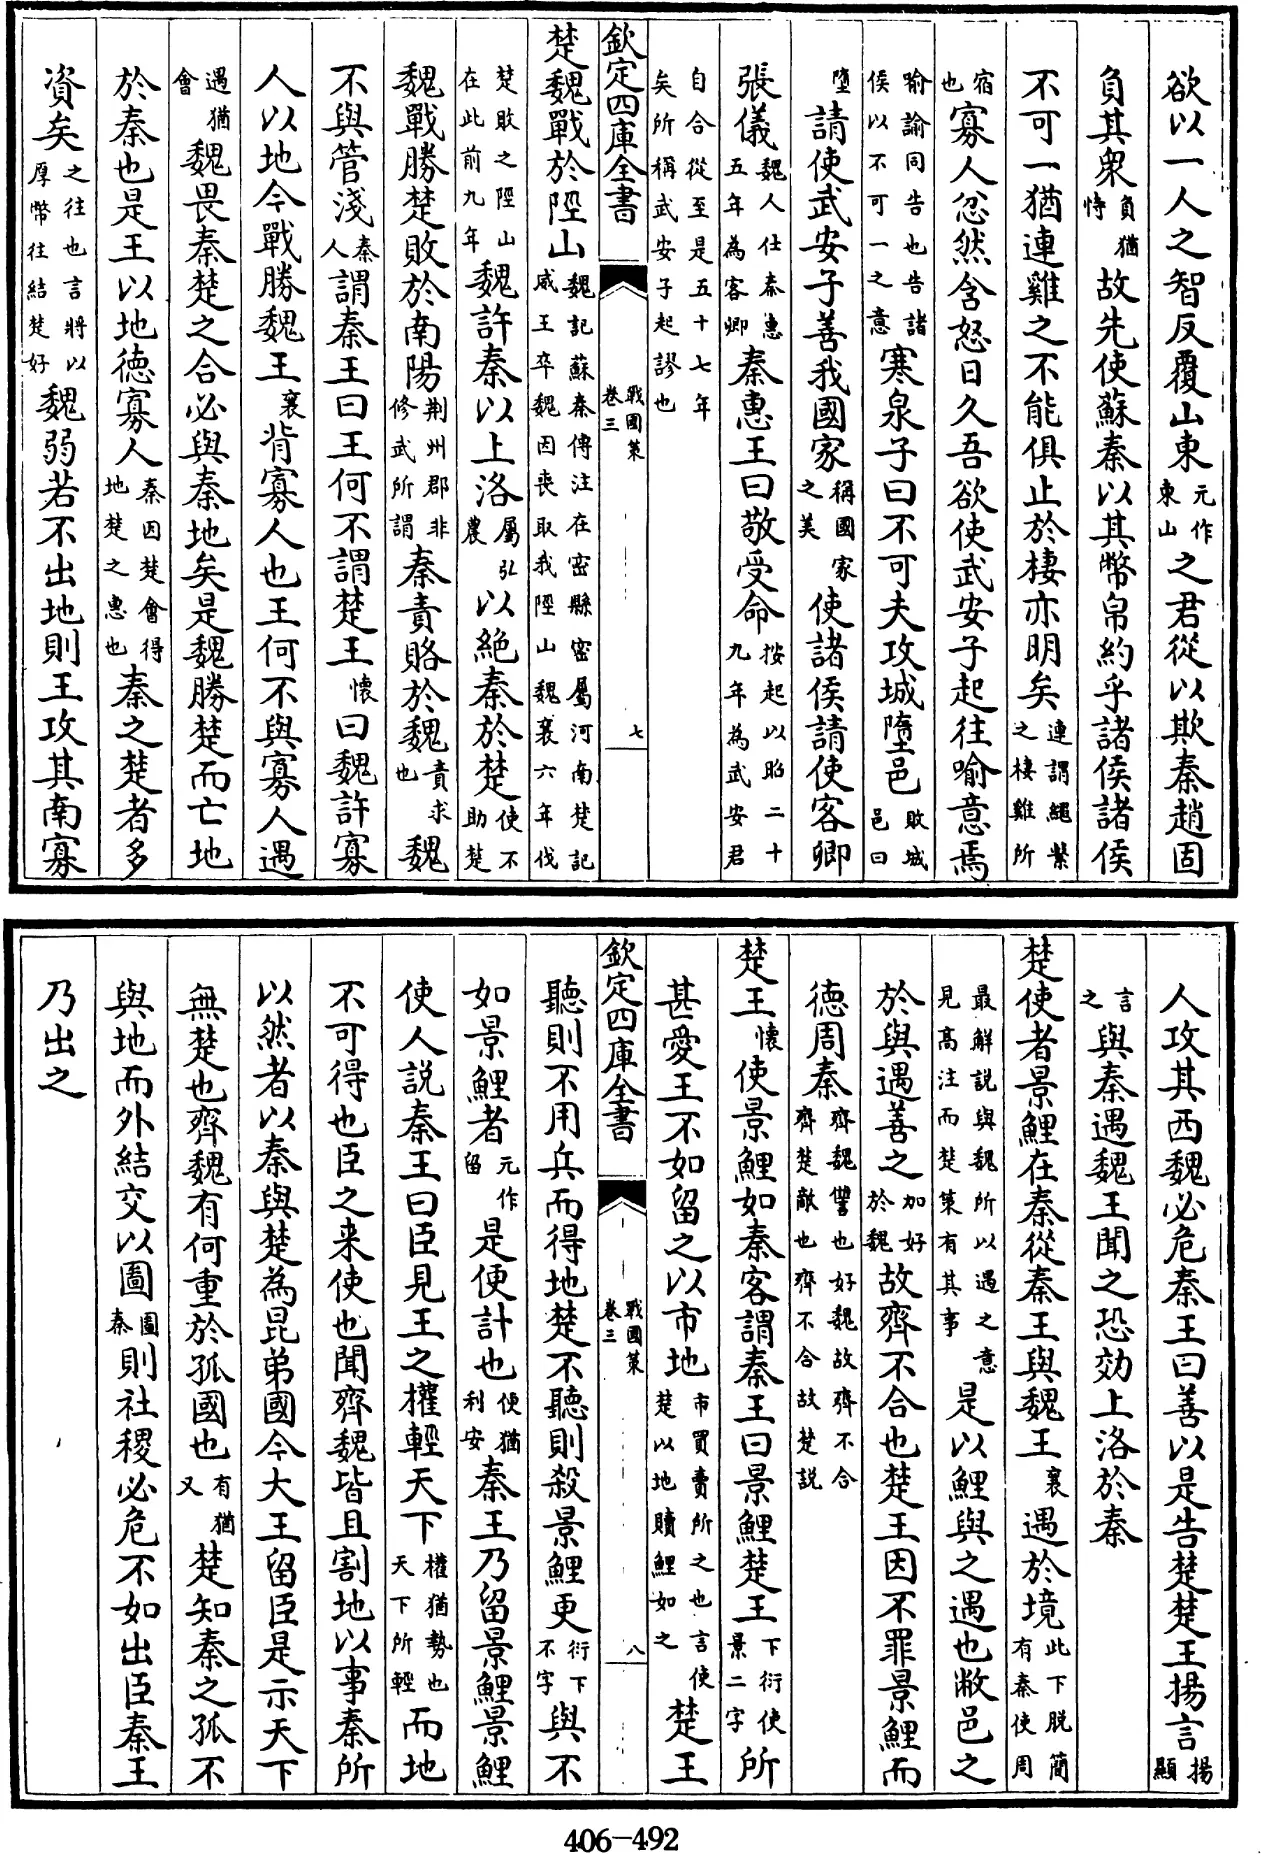 欲以一人之智反覆山東元作東山之君從以欺秦趙固
負其衆負猶恃故先使蘇秦以其幣帛約乎諸侯諸侯
不可一猶連雞之不能俱止於棲亦明矣連謂繩繫之棲雞所
宿也寡人忿然含怒日久吾欲使武安子起往喻意焉
喻諭同告也告諸侯以不可一之意寒泉子曰不可夫攻城墮邑敗城邑曰
墮請使武安子善我國家稱國家之美使諸侯請使客卿
張儀魏人仕秦惠五年為客卿秦惠王曰敬受命按起以昭二十九年為武安君
自合從至是五十七年矣所稱武安子起謬也
欽定四庫全書 戰國策卷三 七
楚魏戰於陘山魏記蘇秦傳注在密縣密屬河南楚記威王卒魏因喪取我陘山魏襄六年伐
楚敗之陘山在此前九年魏許秦以上洛屬弘農以絶秦於楚使不助楚
魏戰勝楚敗於南陽荆州郡非修武所謂秦責賂於魏責求也魏
不與管淺秦人謂秦王曰王何不謂楚王懷曰魏許寡
人以地今戰勝魏王襄背寡人也王何不與寡人遇
遇猶會魏畏秦楚之合必與秦地矣是魏勝楚而亡地
於秦也是王以地德寡人秦因楚會得地楚之惠也秦之楚者多
資矣之往也言將以厚幣往結楚好魏弱若不出地則王攻其南寡
人攻其西魏必危秦王曰善以是告楚楚王揚言揚顯
言之與秦遇魏王聞之恐効上洛於秦
楚使者景鯉在秦從秦王與魏王襄遇於境此下脱簡有秦使周
最解説與魏所以遇之意見高注而楚策有其事是以鯉與之遇也敝邑之
於與遇善之加好於魏故齊不合也楚王因不罪景鯉而
德周秦齊魏讐也好魏故齊不合齊楚敵也齊不合故楚説
楚王懷使景鯉如秦客謂秦王曰景鯉楚王下衍使景二字所
甚愛王不如留之以市地市買賣所之也言使楚以地贖鯉如之楚王
欽定四庫全書 戰國策卷三 八
聽則不用兵而得地楚不聽則殺景鯉更衍下不字與不
如景鯉者元作留是便計也便猶利安秦王乃留景鯉景鯉
使人説秦王曰臣見王之權輕天下權猶勢也天下所輕而地
不可得也臣之来使也聞齊魏皆且割地以事秦所
以然者以秦與楚為昆弟國今大王留臣是示天下
無楚也齊魏有何重於孤國也有猶又楚知秦之孤不
與地而外結交以圖圖秦則社稷必危不如出臣秦王
乃出之
406-492